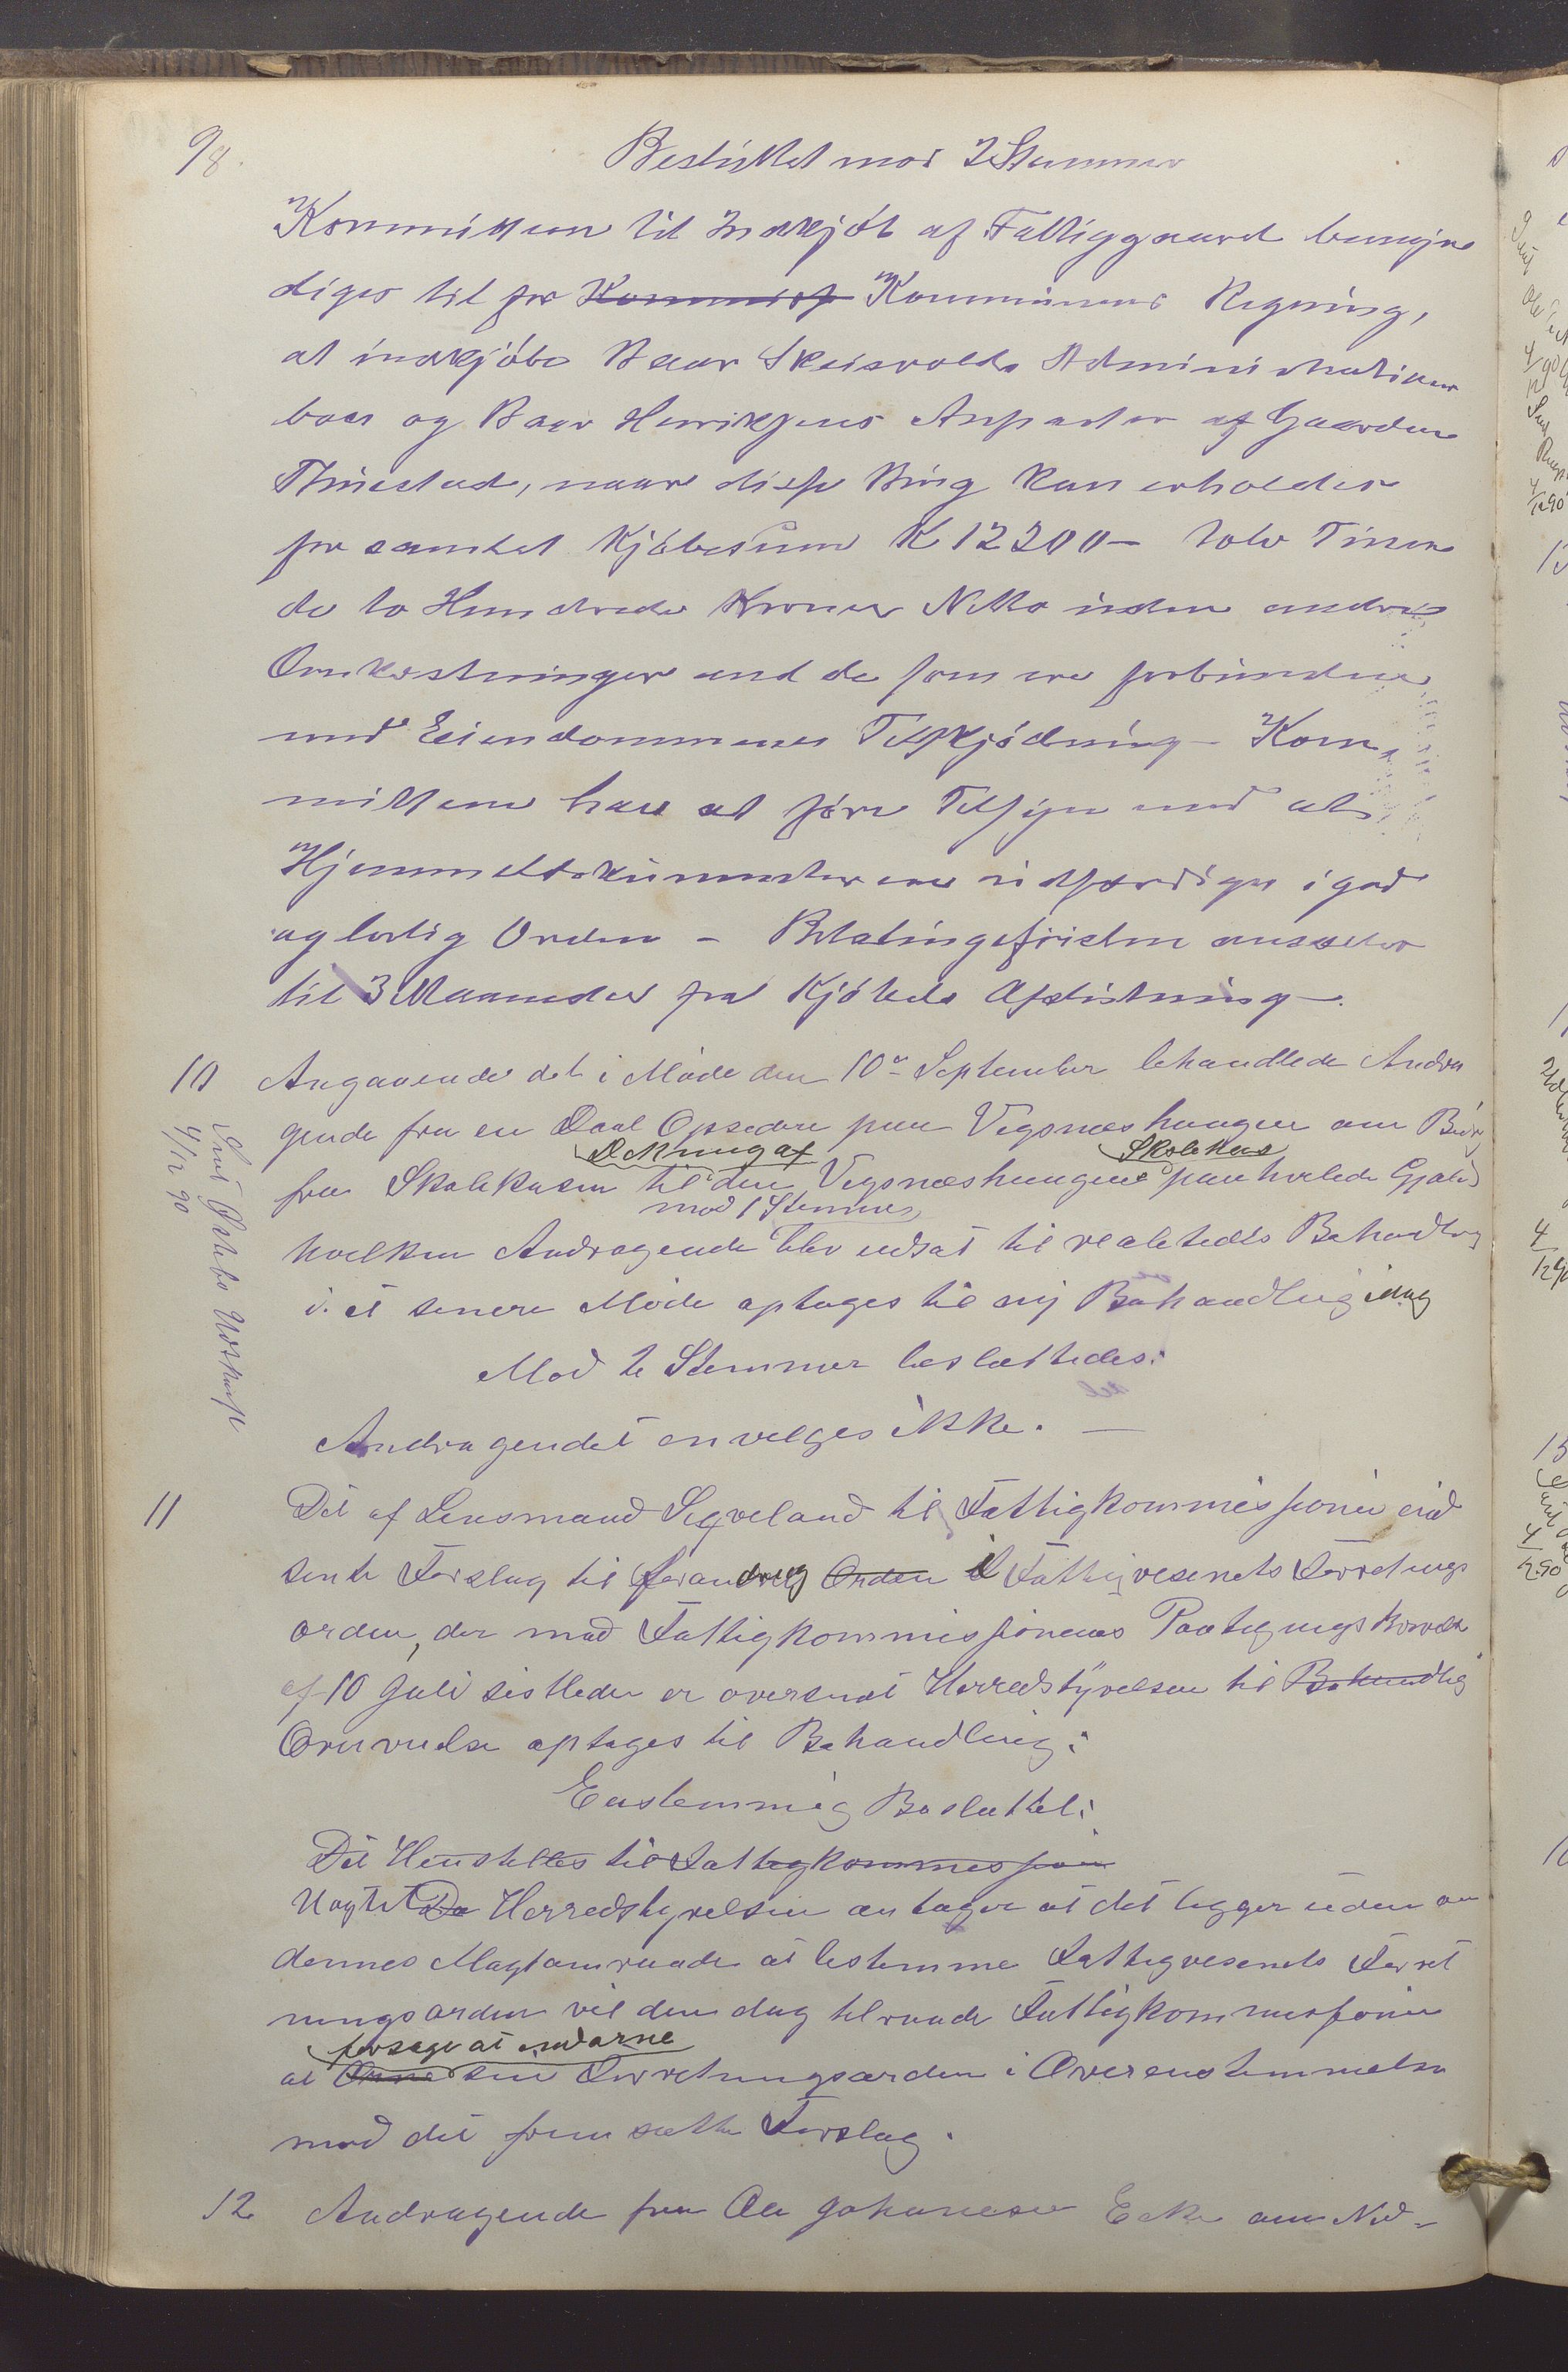 98.
Besluttet mod 2 Stemmer
Kommitteen til Indkjøb af Fattiggaard bemyn
diges til for Kommiss Kommunens Regning,
at indkjøbe Baar Skeisvolds Administrations
boes og Baar Henriksens Anparter af Gaarden
Thuestad, naar disse Brug kan erholdes
for samlet Kjøbesum K 12200 - tolv Tusen
de to Hundrede Kroner Netto uden andre
Omkostninger end de som ere forbundne
med Eiendommenes Tilskjødning - Kom-
mitteen har at føre Tilsyn med at
Hjemmelsdokumenterne udfærdiges i god
og lovlig Orden - Betalingsfristen ansættes
til 3 Maaneder fra Kjøbets Afslutning -
10 Angaaende det i Møde den 10de September behandlede Andra
gende fra en Deel Opsiddere paa Vigsneshaugen om Bidr
Dekning af Skolehus
fra Skolekasen til den Vigsneshaugens paa hvilede Gjæld
mod 1 Stemme
hvilken Andragende blev udsat til realitets Behandling
i et senere Møde optages til ny Behandling idag
Mod to Stemmer besluttedes:
Andragendet envilges ikke. -
11 Det af Lensmand Sigveland til Fattigkommissionen ind
sente Forslag til Forandring Orden i Fattigvesenets Forretnings
orden, der med Fattigkommissionens Paategningsskrivelse
af 10 Juli sistleden er oversendt Herredstyrelsen til Behandling
Overveielse optages til Behandling:
Enstemmig Besluttet:
Det Henstilles til Fattigkommission
Uagtet Da Herredstyrelsen antager at det ligger uden om
dennes Magtomraade at bestemme Fattigvesenets Forret
ningsorden vil den dog tilraade Fattigkommissionen
forsøge at ordne
at Ordne sin Forretningsorden i Overenstemmelse
med det fremsatte Forslag.
12 Andragende fra Ole Johanesen Eike om Ned-
4/12 90